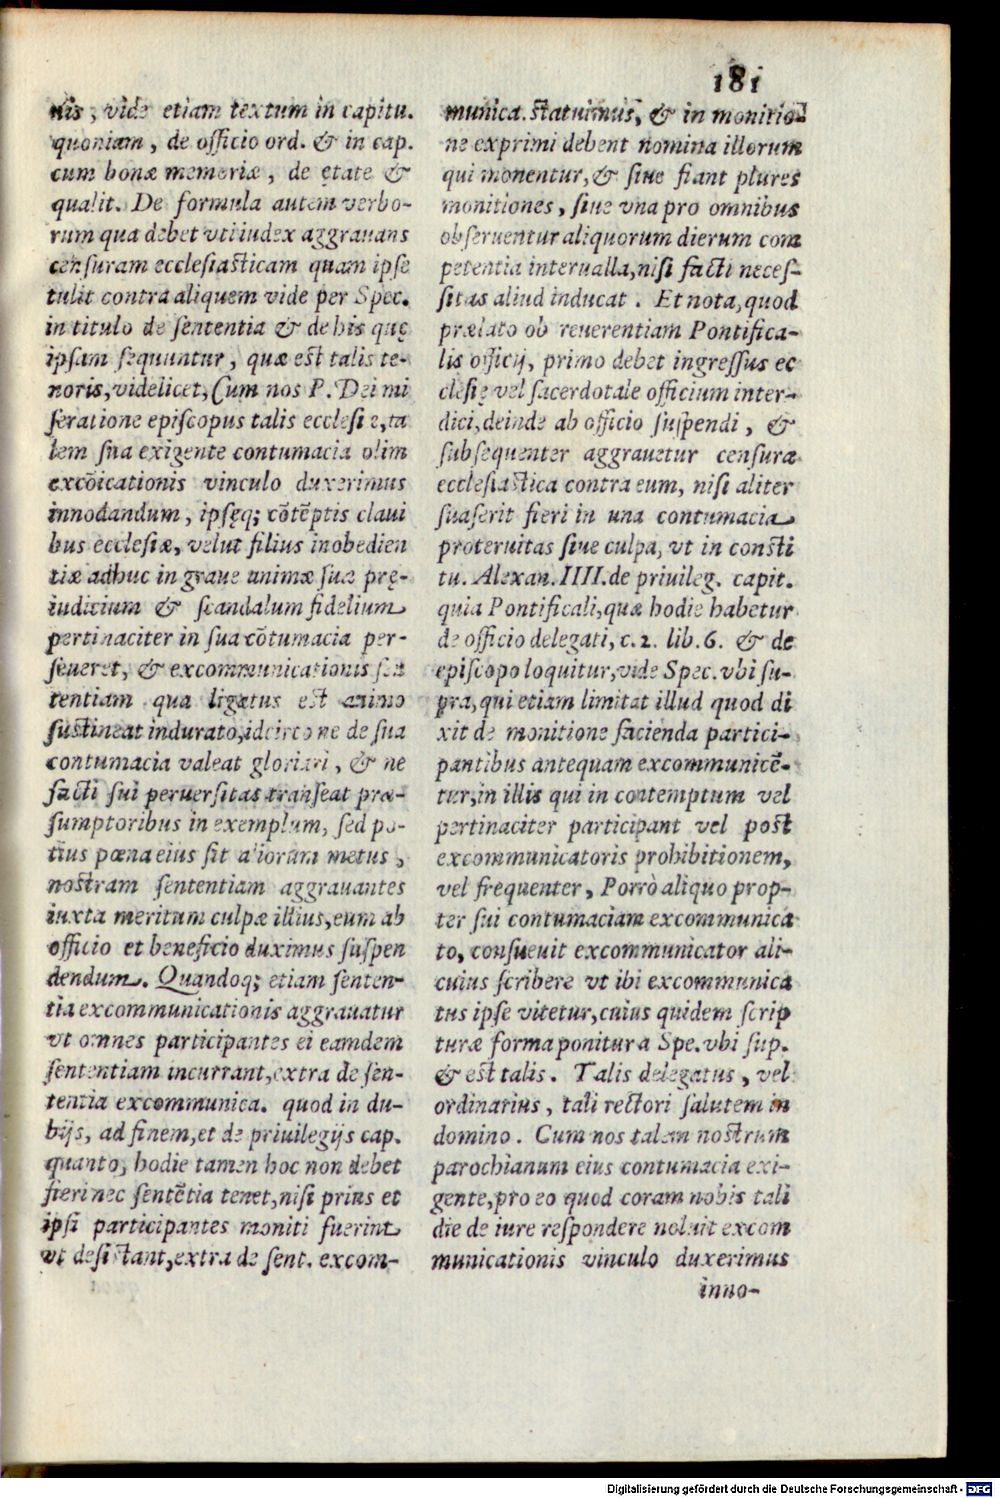 181
nis, vide etiam textum in capitu.
quoniam, de officio ord. & in cap.
cum bonæ memoriæ, de ętate &
qualit. De formula autem verbo-
rum qua debet vti iudex aggrauans
censuram ecclesiasticam quam ipse
tulit contra aliquem vide per Spec.
in titulo de sententia & de his quę
ipsam sequuntur, quæ est talis te-
noris, videlicet, Cum nos P. Dei mi
seratione episcopus talis ecclesiæ, ta
lem sua exigente contumacia olim
excõicationis vinculo duxerimus
innodandum, ipsęq; cõtẽptis claui
bus ecclesiæ, velut filius inobedien
tiæ adhuc in graue animæ suæ prę-
iudicium & scandalum fidelium
pertinaciter in sua cõtumacia per-
seueret, & excommunicationis sen
tentiam qua ligatus est animo
sustineat indurato, idcirco ne de sua
contumacia valeat gloriari, & ne
facti sui peruersitas transeat præ-
sumptoribus in exemplum, sed po-
tius pœna eius sit aliorum metus,
nostram sententiam aggrauantes
iuxta meritum culpæ illius, eum ab
officio et beneficio duximus suspen
dendum. Quandoq; etiam senten-
tia excommunicationis aggrauatur
vt omnes participantes ei eamdem
sententiam incurrant, extra de sen-
tentia excommunica. quod in du-
bijs, ad finem, et de priuilegijs cap.
quanto, hodie tamen hoc non debet
fieri nec sentẽtia tenet, nisi prius et
ipsi participantes moniti fuerint
vt desistant, extra de sent. excom-
munica. statuimus, & in monitio-
ne exprimi debent nomina illorum
qui monentur, & siue fiant plures
monitiones, siue vna pro omnibus
obseruentur aliquorum dierum com
petentia interualla, nisi facti neces-
sitas aliud inducat. Et nota, quod
prælato ob reuerentiam Pontifica-
lis officij, primo debet ingressus ec
clesię vel sacerdotale officium inter-
dici, deinde ab officio suspendi, &
subsequenter aggrauetur censura
ecclesiastica contra eum, nisi aliter
suaserit fieri in una contumacia
proteruitas siue culpa, vt in consti
tu. Alexan. IIII. de priuileg. capit.
quia Pontificali, quæ hodie habetur
de officio delegati, c. 2. lib. 6. & de
episcopo loquitur, vide Spec. vbi su-
pra, qui etiam limitat illud quod di
xit de monitione facienda partici-
pantibus antequam excommunicẽ-
tur, in illis qui in contemptum vel
pertinaciter participant vel post
excommunicatoris prohibitionem,
vel frequenter, Porrò aliquo prop-
ter sui contumaciam excommunica
to, consueuit excommunicator ali-
cuius scribere vt ibi excommunica
tus ipse vitetur, cuius quidem scrip
turæ forma ponitur a Spe. vbi sup.
& est talis. Talis delegatus, vel
ordinarius, tali rectori salutem in
domino. Cum nos talem nostrum
parochianum eius contumacia exi-
gente, pro eo quod coram nobis tali
die de iure respondere noluit excom
municationis vinculo duxerimus
inno-
Digitalisierung gefördert durch die Deutsche Forschungsgemeinschaft - DFG